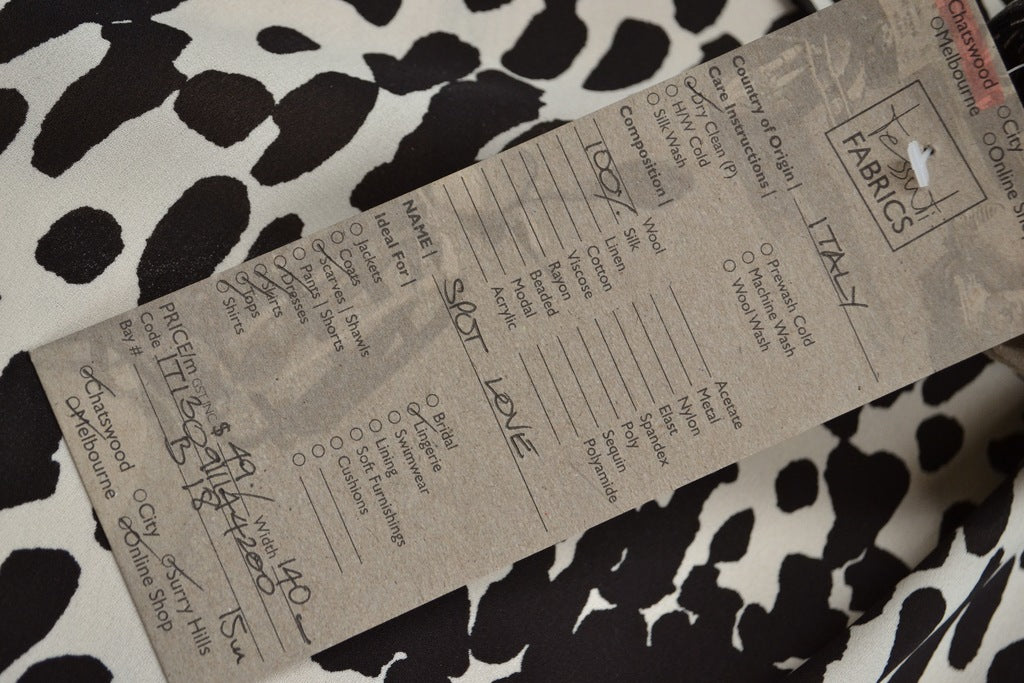 Chatswood
Melbourne
City
Online
Tessuti
FABRICS
Country of Origin | ITALY
Care Instructions |
Dry Clean (P)
H/W Cold
Silk Wash
Prewash Cold
Machine Wash
Wool Wash
Composition |
Wool
100% Silk
Linen
Cotton
Viscose
Rayon
Beaded
Modal
Acrylic
Acetate
Metal
Nylon
Elast
Spandex
Poly
Sequin
Polyamide
NAME | SPOT LOVE
Ideal For |
Jackets
Coats
Scarves | Shawls
Pants | Shorts
Dresses
Skirts
Tops
Shirts
Bridal
Lingerie
Swimwear
Lining
Soft Furnishings
Cushions
PRICE/m GST INC $ 49.- Width 140
Code
Bay # B 18 15m
Chatswood
Melbourne
City
Online Shop
Surry Hills